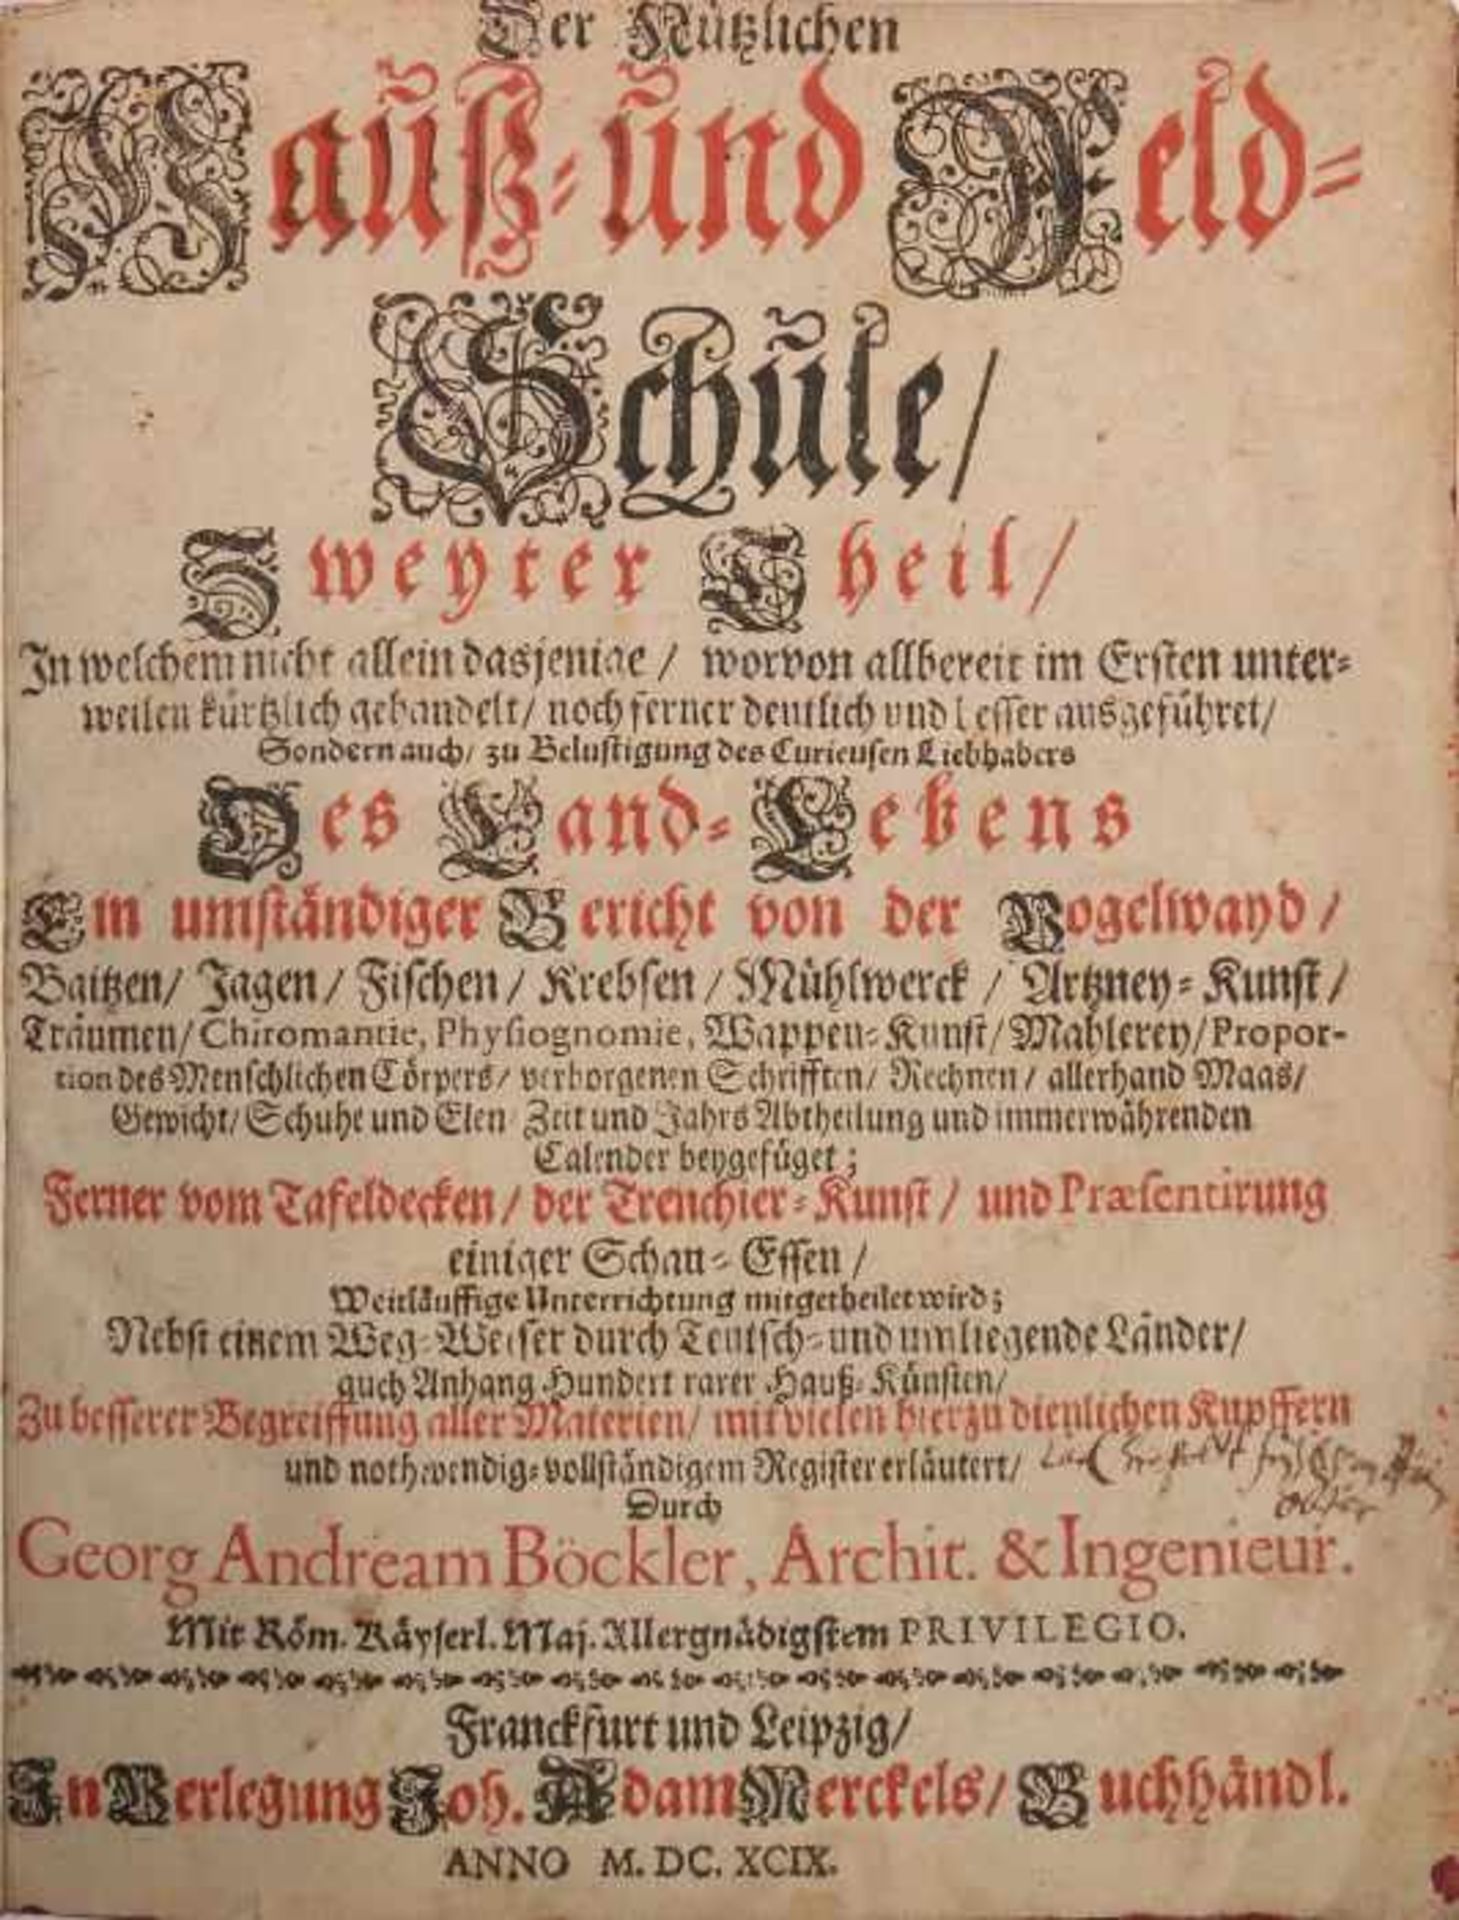 Der Nützlichen
Hauß- und Feld-
Schule/
Zweyter Theil/
In welchem nicht allein dasjenige / worvon allbereit im Ersten unter-
weilen kürtzlich gehandelt/ noch ferner deutlich vnd besser ausgeführet/
Sondern auch/ zu Belustigung des Curieusen Liebhabers
Des Land-Lebens
Ein umständiger Bericht von der Vogelwayd /
Baitzen/ Jagen / Fischen / Krebsen / Mühlwerck / Artzney-Kunst /
Träumen/ Chiromantie, Physiognomie, Wappen-Kunst/ Mahlerey/ Propor-
tion des Menschlichen Cörpers/ verborgenen Schrifften/ Rechnen / allerhand Maas/
Gewicht/ Schuhe und Elen Zeit und Jahrs Abtheilung und immerwährenden
Calender beygefüget ;
Ferner vom Tafeldecken / der Trenchier-Kunst / und Præsentirung
einiger Schau-Essen /
Weitläuffige Unterrichtung mitgetheilet wird ;
Nebst einem Weg-Weiser durch Teutsch- und umliegende Länder/
auch Anhang Hundert rarer Hauß-Künsten/
Zu besserer Begreiffung aller Materien/ mit vielen hierzu dienlichen Kupffern
und nothwendig-vollständigem Register erläutert/
Durch
Georg Andream Böckler, Archit. & Ingenieur.
Mit Röm. Käyserl. Maj. Allergnädigstem PRIVILEGIO.
Franckfurt und Leipzig/
In Verlegung Joh. Adam Merckels/ Buchhändl.
ANNO M. DC. XCIX.